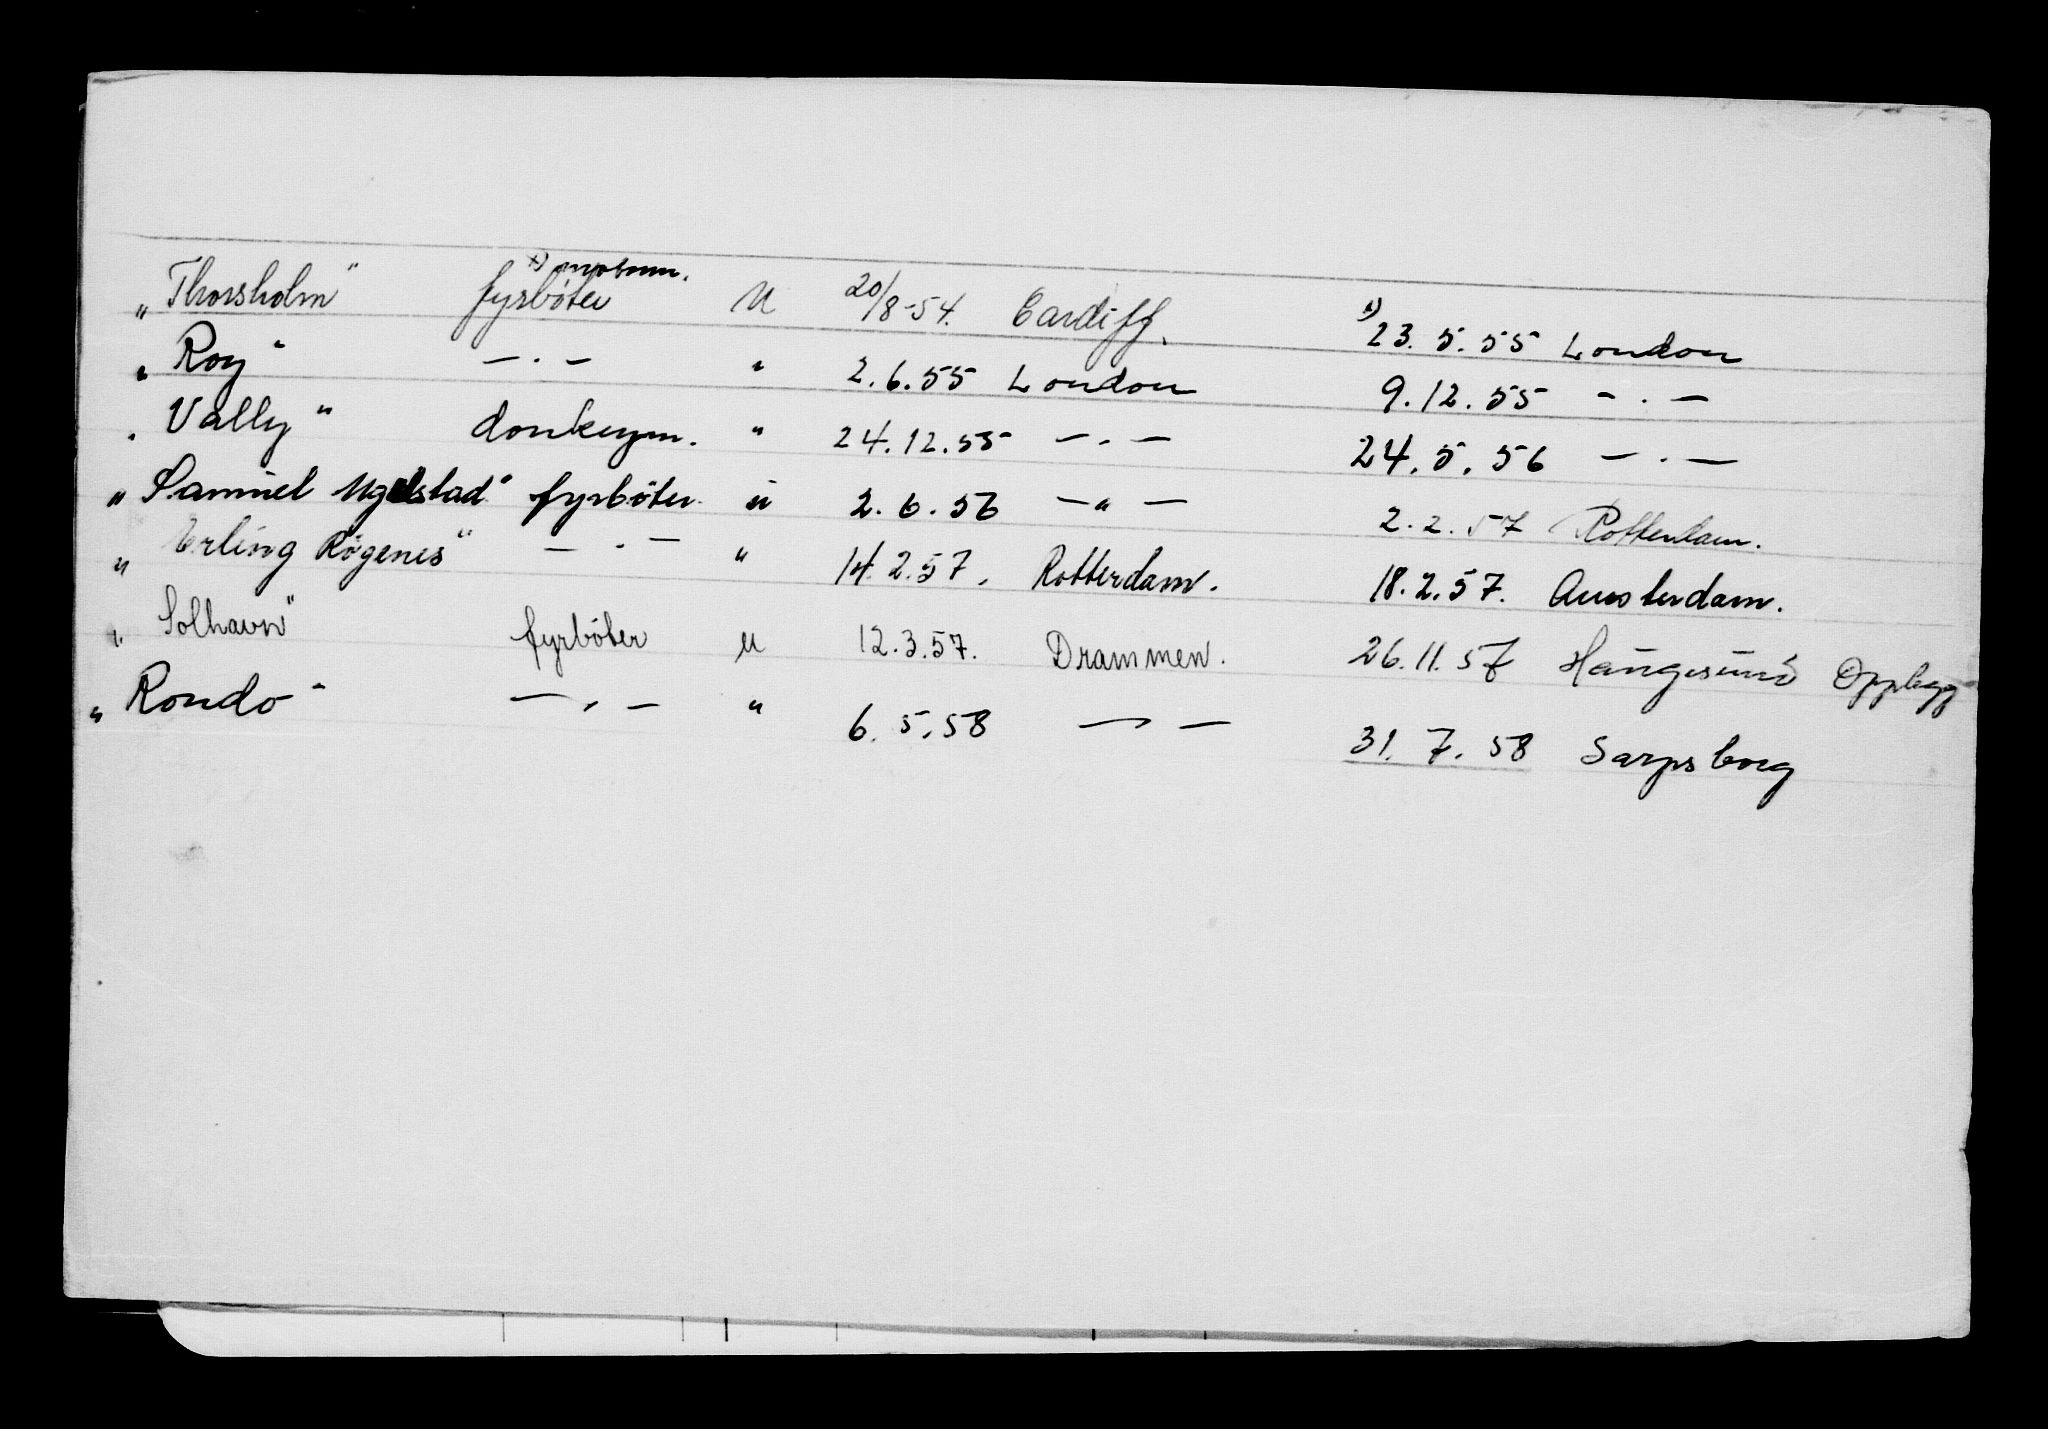 „Thorsholm" fyrbøter x) motorm. U 20/8-54. Cardiff. x) 23.5.55 London
„Roy" — . — " 2.6.55 London 9.12.55 — . —
„Vally" donkeym. " 24.12.55 — . — 24.5.56 — . —
„Samuel Ugelstad" fyrbøter u 2.6.56 — " — 2.2.57 Rotterdam.
„Erling Røgenes" — . — " 14.2.57. Rotterdam. 18.2.57. Amsterdam.
„Solhavn" fyrbøter U 12.3.57. Drammen. 26.11.57 Haugesund Opplegg
„Rondo" — . — " 6.5.58 — — 31.7.58 Sarpsborg